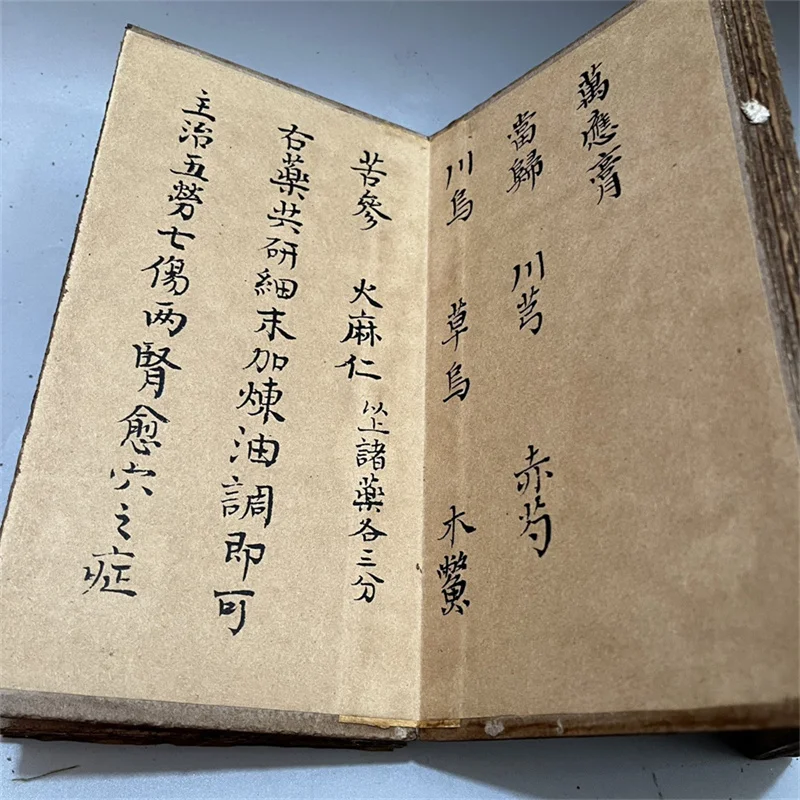 萬應膏
當歸 川芎 赤芍
川烏 草烏 木鱉
苦參 火麻仁 以上諸藥各三分
右藥共研細末加煉油調即可
主治五勞七傷两腎愈穴之症